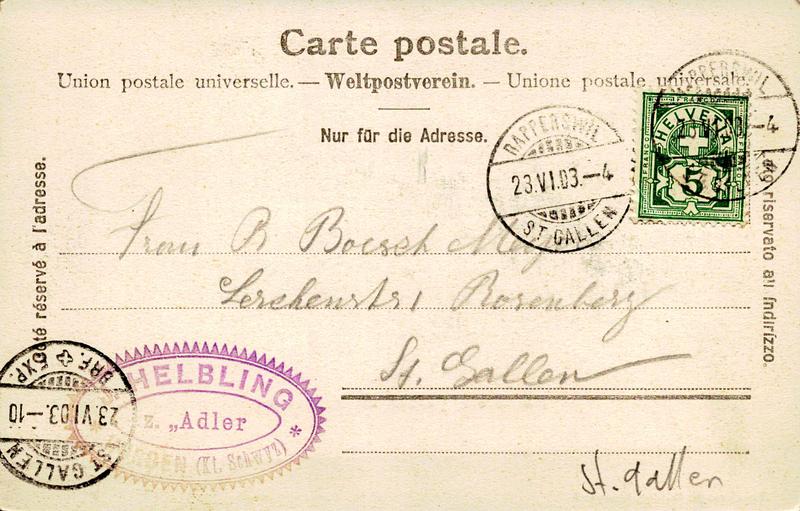 Carte postale.
Union postale universelle. — Weltpostverein. — Unione postale universale.
Nur für die Adresse.
RAPPERSWIL
23.VI.03.–4
ST. GALLEN
RAPPERSWIL
–4
FRANCO
HELVETIA
FRANCO
5
Côté réservé à l'adresse.
riservato all' indirizzo.
Frau R. Boesch
Lerchenstr 1 Rosenberg
St. Gallen
HELBLING
z. „Adler
(Kt. Schwyz)
BRF. EXP.
23 VI.03.–10
ST GALLEN
St. Gallen